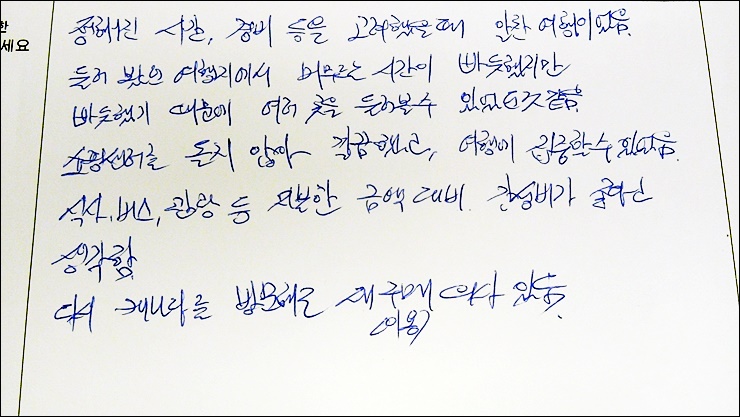 한
세요
정해진 시간, 경비 등을 고려했을 때 알찬 여행이었음.
들러 봤던 여행지에서 머무르는 시간이 빠듯했지만
빠듯했기 때문에 여러 곳을 둘러볼 수 있었던 것 같음.
쇼핑센터를 돌지 않아 깔끔했고, 여행에 집중할 수 있었음.
식사, 버스, 관광 등 지불한 금액 대비 가성비가 굳
생각함
다시 캐나다를 방문해도 재구매 의사 있음.
(이용)